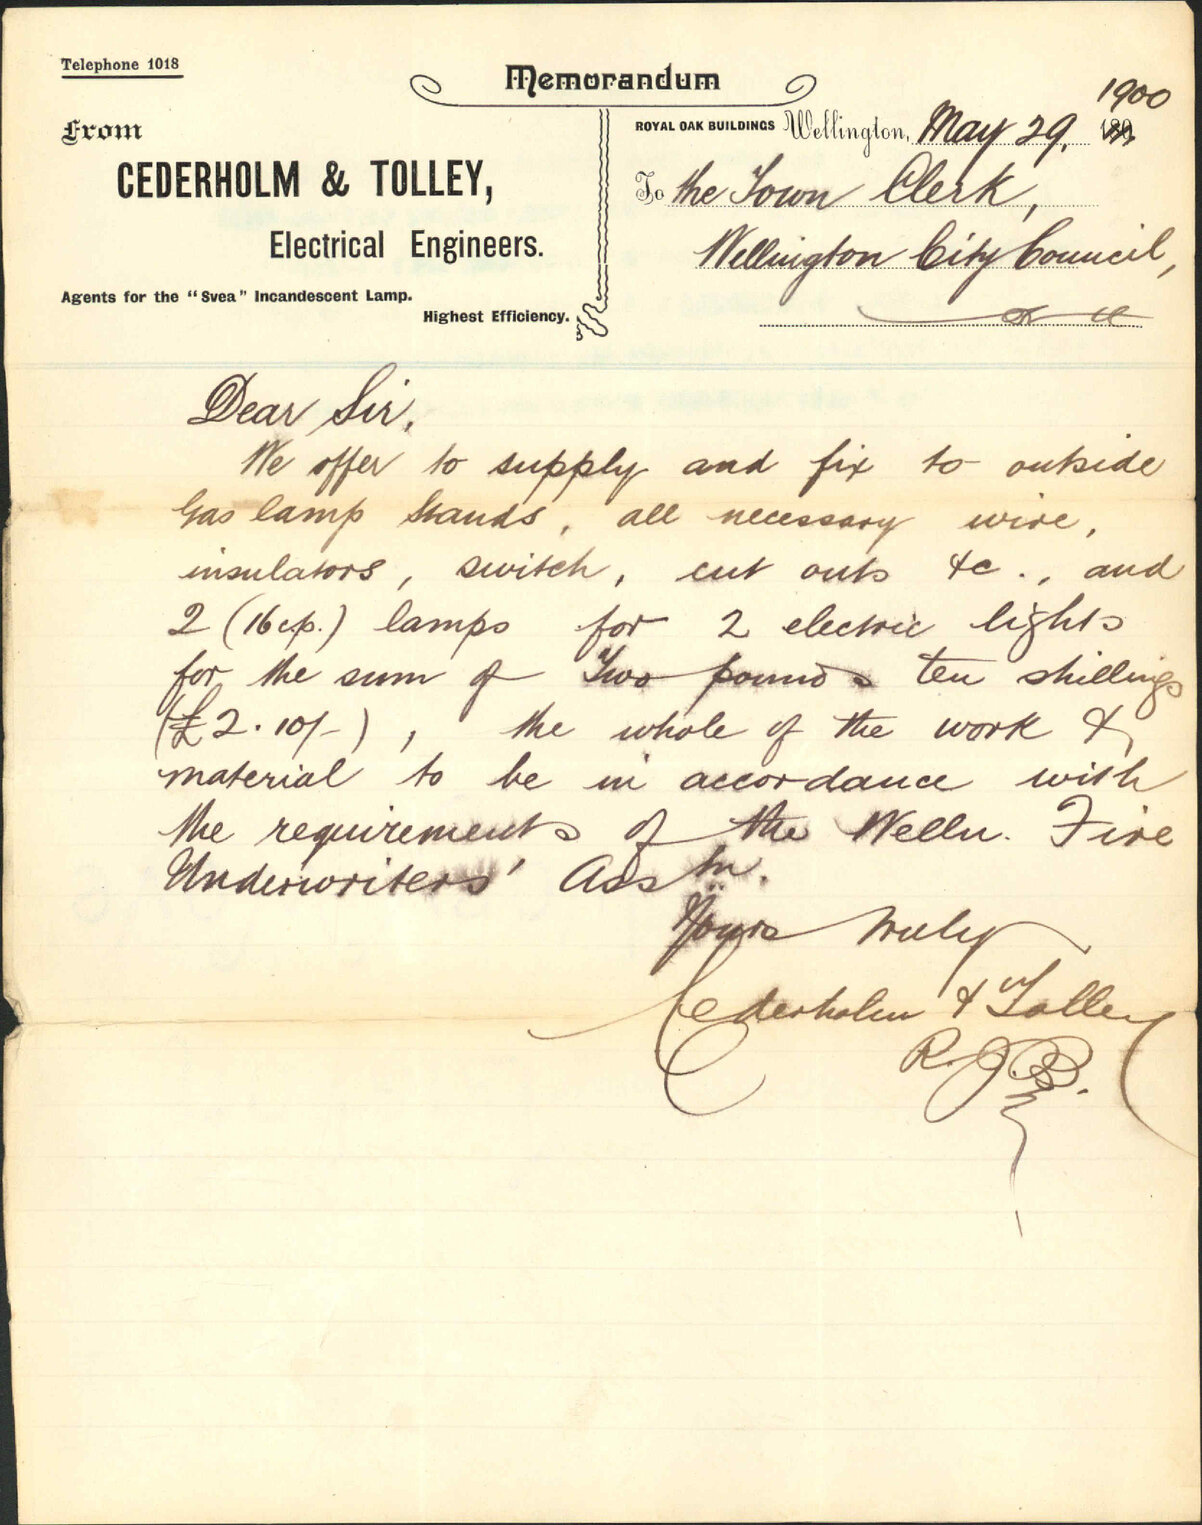 Telephone 1018
Memorandum
From
CEDERHOLM & TOLLEY,
Electrical Engineers.
Agents for the "Svea" Incandescent Lamp.
Highest Efficiency.
1900
ROYAL OAK BUILDINGS Wellington, May 29, 189
To the Town Clerk,
Wellington City Council,
Dear Sir,
We offer to supply and fix to outside
Gas lamp stands, all necessary wire,
insulators, switch, cut outs &c., and
2 (16 c.p.) lamps for 2 electric lights
for the sum of Two pounds ten shillings
(£2.10/-), the whole of the work &
material to be in accordance with
the requirements of the Welln. Fire
Underwriters' Asstn.
Yours truly
Cederholm & Tolley
R.J.B.